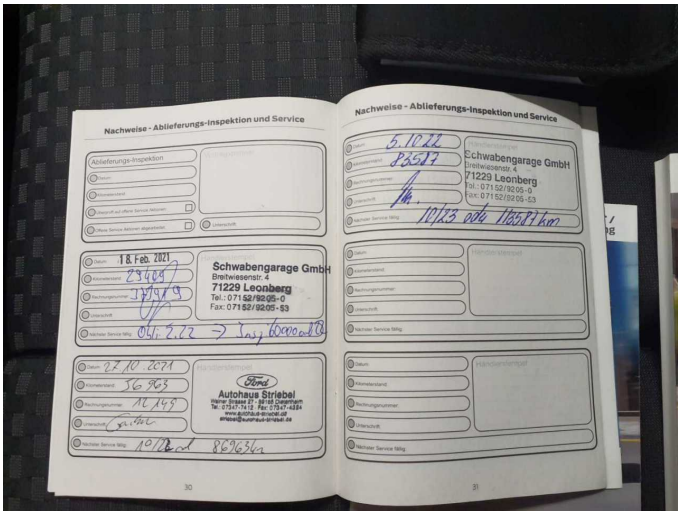 Nachweise - Ablieferungs-Inspektion und Service
Ablieferungs-Inspektion
Datum
Kilometerstand
Überprüft auf offene Service Aktionen
Offene Service Aktionen abgearbeitet
Unterschrift
Datum 18. Feb. 2021
Kilometerstand 29409
Rechnungsnummer
Unterschrift
Nächster Service fällig 2.22 → Insp 60000
Schwabengarage GmbH
Breitwiesenstr. 4
71229 Leonberg
Tel.: 07152/9205-0
Fax: 07152/9205-53
Datum 27.10.2021
Kilometerstand 56963
Rechnungsnummer 12149
Unterschrift
Nächster Service fällig 86963km
Händlerstempel
Ford
Autohaus Striebel
Mainer Strasse 27 - 89165 Dietenheim
Tel.: 07347-7412 Fax: 07347-4224
www.autohaus-striebel.de
striebel@autohaus-striebel.de
30
Nachweise - Ablieferungs-Inspektion und Service
Datum 5.10.22
Kilometerstand 83587
Rechnungsnummer
Unterschrift
Nächster Service fällig 10/23 oder 113587 km
Händlerstempel
Schwabengarage GmbH
Breitwiesenstr. 4
71229 Leonberg
Tel.: 07152/9205-0
Fax: 07152/9205-53
Datum
Kilometerstand
Rechnungsnummer
Unterschrift
Nächster Service fällig
Händlerstempel
Datum
Kilometerstand
Rechnungsnummer
Unterschrift
Nächster Service fällig
Händlerstempel
31